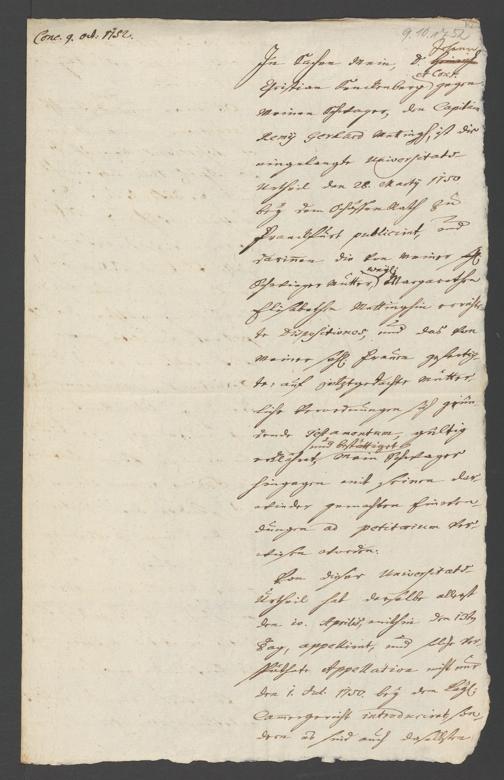 Conc. 9. oct. 1752.
9.10.1752
In Sachen Mein, D. Johann
et Cons.
Christian Senckenberg gegen
Meinen Schwager, den Capitain
Remy Gerhard Mettingh, ist die
eingelangte Universitäts
Urtheil den 28. Martij 1750
bey dem Schöffen Rath zu
Franckfurt publicirt, und
darinnen die von meiner
Schwieger Mutter, weyl. Margaretha
Elisabetha Mettinghin errichte-
te Dispositiones, und das von
meiner seel. Frauen gefertig-
te, auf jetztgedachte Mütter-
liche Verordnungen sich grün-
dende Testamentum, gültig
und bestättiget
erklährt, Mein Schwager
hingegen mit seinen dar-
wieder gemachten Einwen-
dungen ad petitorium ver-
wiesen worden.
Von dieser Universitäts
Urtheil hat derselbe allererst
den 10. Aprilis, mithin den 13ten
Tag, appellirt, und solche ver-
spätete Appellation nicht nur
den 1. Jul. 1750. bey dem Kayserl.
Cammergericht introducirt, son-
dern es sind auch daselbsten